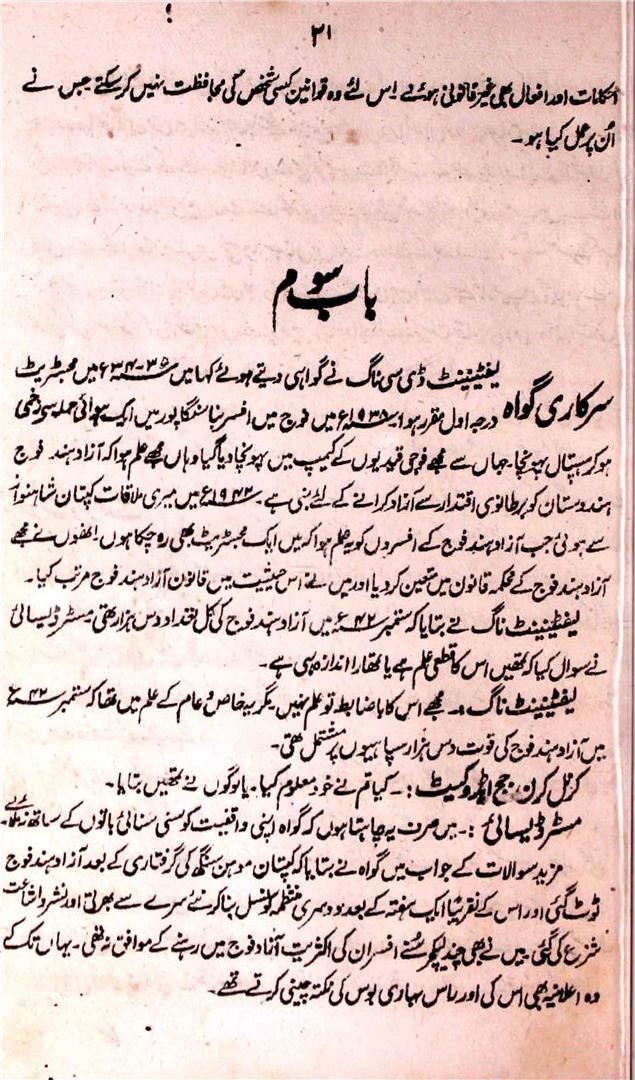 ۲۱
احکامات اور افعال بھی غیر قانونی ہوئے۔ اس لئے وہ قوانین کسی شخص کی محافظت نہیں کر سکتے جس نے
اُن پر عمل کیا ہو۔
باب سوم
سرکاری گواہ
لیفٹیننٹ ڈی سی ناگ نے گواہی دیتے ہوئے کہا میں ۳۵-۶۳۴ میں مجسٹریٹ
درجہ اول مقرر ہوا۔ ۱۹۳۸ء میں فوج میں افسر بنا سنگاپور میں ایک ہوائی حملہ سی زخمی
ہو کر ہسپتال پہونچا۔ جہاں سے مجھے فوجی قیدیوں کے کیمپ میں پہونچا دیا گیا وہاں مجھے علم ہوا کہ آزاد ہند فوج
ہندوستان کو برطانوی اقتدار سے آزاد کرانے کے لئے بنی ہے۔ ۱۹۴۲ء میں میری ملاقات کپتان شاہنواز
سے ہوئی جب آزاد ہند فوج کے افسروں کو یہ علم ہوا کہ میں ایک مجسٹریٹ بھی رہ چکا ہوں انھوں نے مجھے
آزاد ہند فوج کے محکمہ قانون میں متعین کر دیا اور میں نے اس حیثیت میں قانون آزاد ہند فوج مرتب کیا۔
لیفٹیننٹ ناگ نے بتایا کہ ستمبر ۴۲ء میں آزاد ہند فوج کی کل تعداد دس ہزار تھی مسٹر ڈیسائی
نے سوال کیا کہ تمھیں اس کا قطعی علم ہے یا تمھارا اندازہ ہی ہے۔
لیفٹیننٹ ناگ :۔ مجھے اس کا باضابطہ تو علم نہیں مگر یہ خاص و عام کے علم میں تھا کہ ستمبر ۴۲ء
میں آزاد ہند فوج کی قوت دس ہزار سپاہیوں پر مشتمل تھی۔
کرنل کرن جج ایڈوکیٹ :۔ کیا تم نے خود معلوم کیا۔ یا لوگوں نے تمھیں بتایا۔
مسٹر ڈیسائی :۔ میں صرف یہ چاہتا ہوں کہ گواہ اپنی واقفیت کو سنی سنائی باتوں کے ساتھ نہ ملائے
مزید سوالات کے جواب میں گواہ نے بتایا کہ کپتان موہن سنگھ کی گرفتاری کے بعد آزاد ہند فوج
ٹوٹ گئی اور اس کے تقریباً ایک ہفتہ کے بعد دوسری منتظمہ کونسل بنا کر نئے سرے سے بھرتی اور نشر و اشاعت
شروع کی گئی۔ میں نے بھی چند لیکچر سُنے افسران کی اکثریت آزاد فوج میں رہنے کے موافق نہ تھی۔ یہاں تک کے
وہ اعلانیہ بھی اس کی اور راس بہاری بوس کی نکتہ چینی کرتے تھے۔